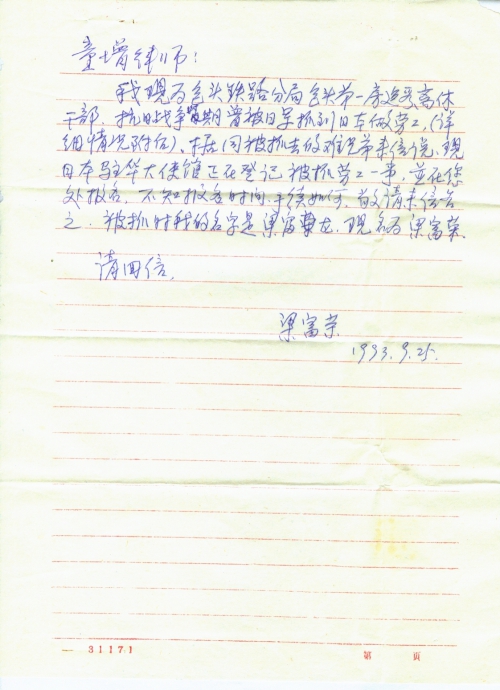 童增律师：
我现为包头铁路分局包头第一房建段离休
干部，抗日战争时期曾被日军抓到日本做劳工，（详
细情况附后）。据同被抓去的难兄弟来信说，现
日本驻华大使馆正在登记被抓劳工一事，并在您
处报名，不知报名时间，手续如何，故请来信告
之，被抓时我的名字是梁富，现名为梁富荣。
请回信。
梁富荣
1993.9.25.
31171
第 页